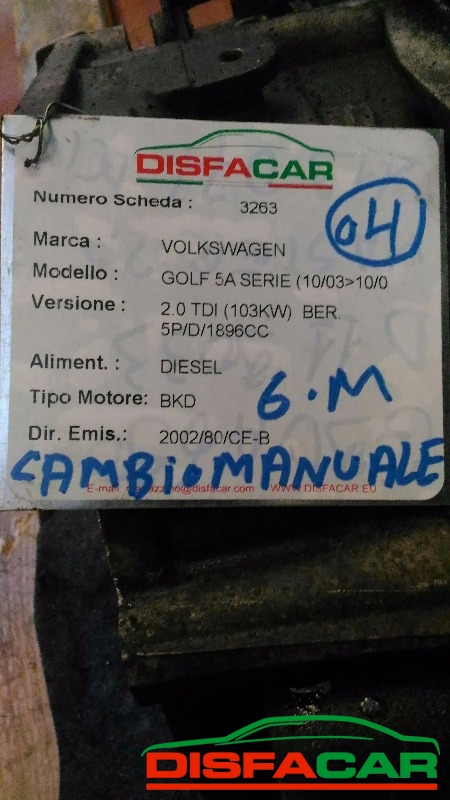 DISFACAR
Numero Scheda : 3263
04
Marca : VOLKSWAGEN
Modello : GOLF 5A SERIE (10/03>10/0
Versione : 2.0 TDI (103KW) BER.
5P/D/1896CC
Aliment. : DIESEL
Tipo Motore: BKD
6.M
Dir. Emis.: 2002/80/CE-B
CAMBIO MANUALE
E-mail magazzino@disfacar.com WWW.DISFACAR.EU
DISFACAR